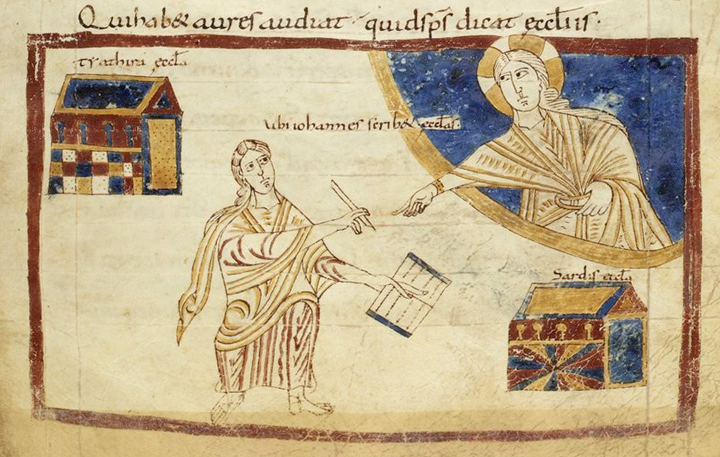 Qui hab& aures audiat quid sps dicat eccliis·
tyathira eccła
ubi iohannes scrib& ecclas·
Sardis eccła